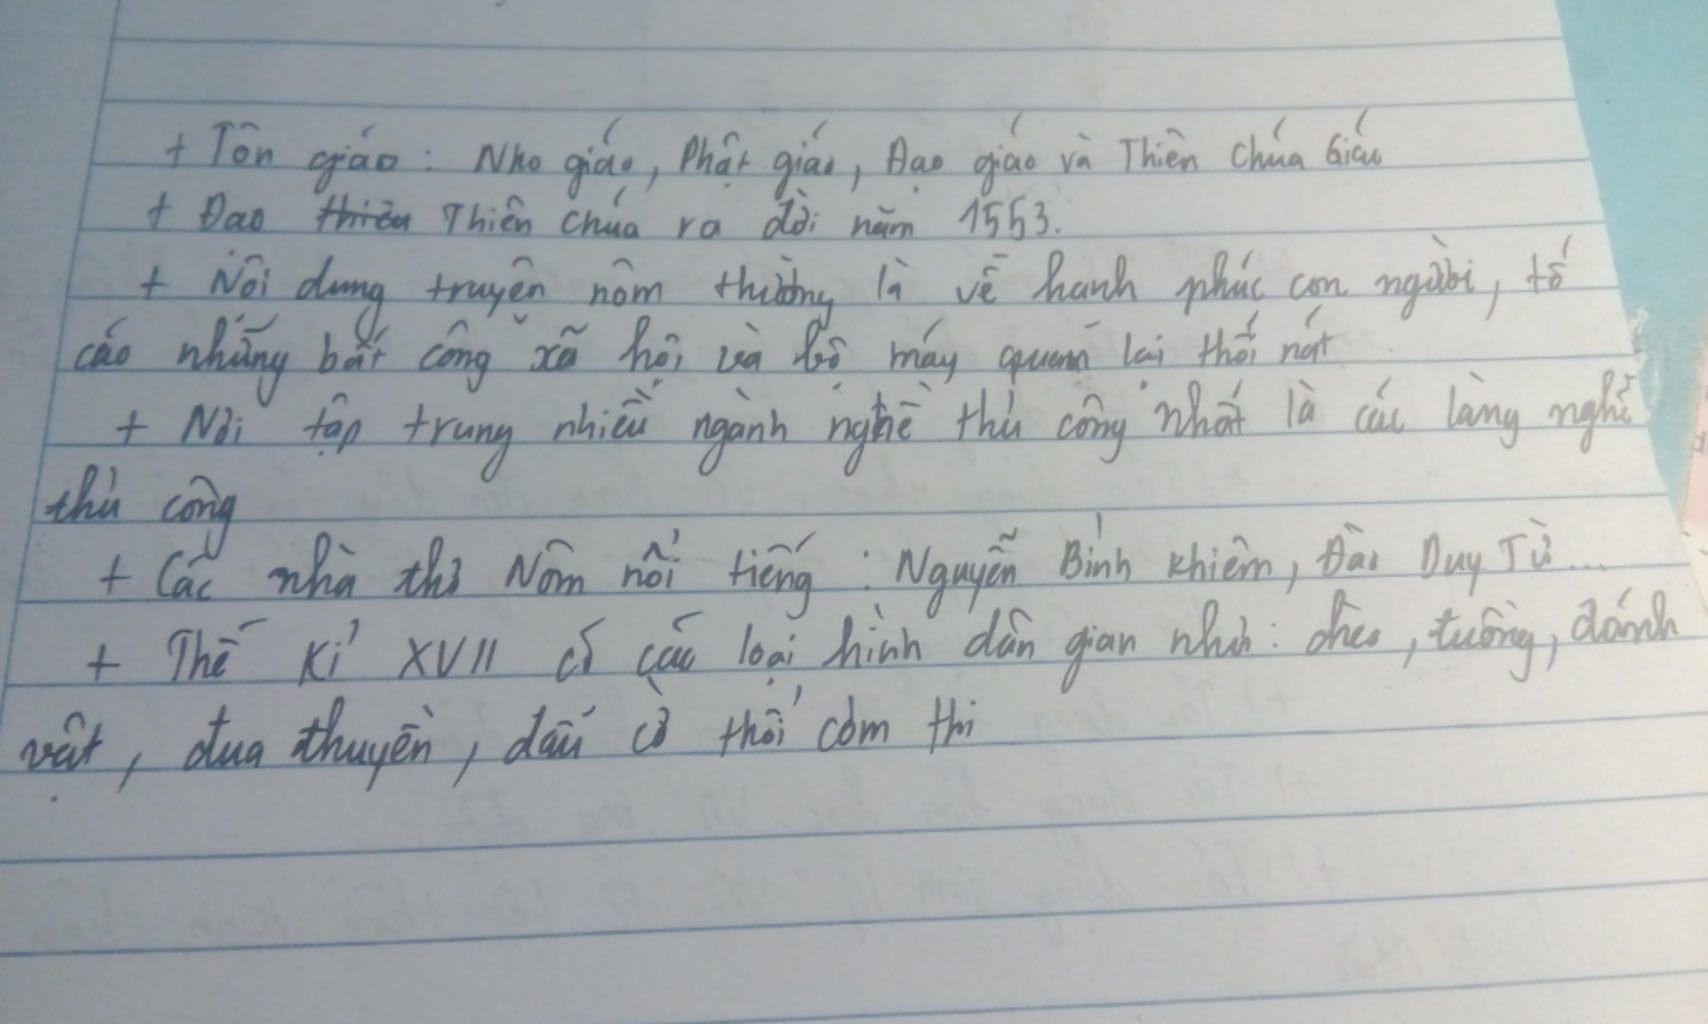 + Tôn giáo: Nho giáo, Phật giáo, Đạo giáo và Thiên Chúa Giáo
+ Đạo thiên Thiên Chúa ra đời năm 1553.
+ Nội dung truyện nôm thường là về hạnh phúc con người, tố
cáo những bất công xã hội và bộ máy quan lại thối nát
+ Nơi tập trung nhiều ngành nghề thủ công nhất là các làng nghề
thủ công
+ Các nhà thơ Nôm nổi tiếng: Nguyễn Bỉnh Khiêm, Đào Duy Từ...
+ Thế kỉ XVII có các loại hình dân gian như: chèo, tuồng, đánh
vật, đua thuyền, đấu cờ thổi cơm thi